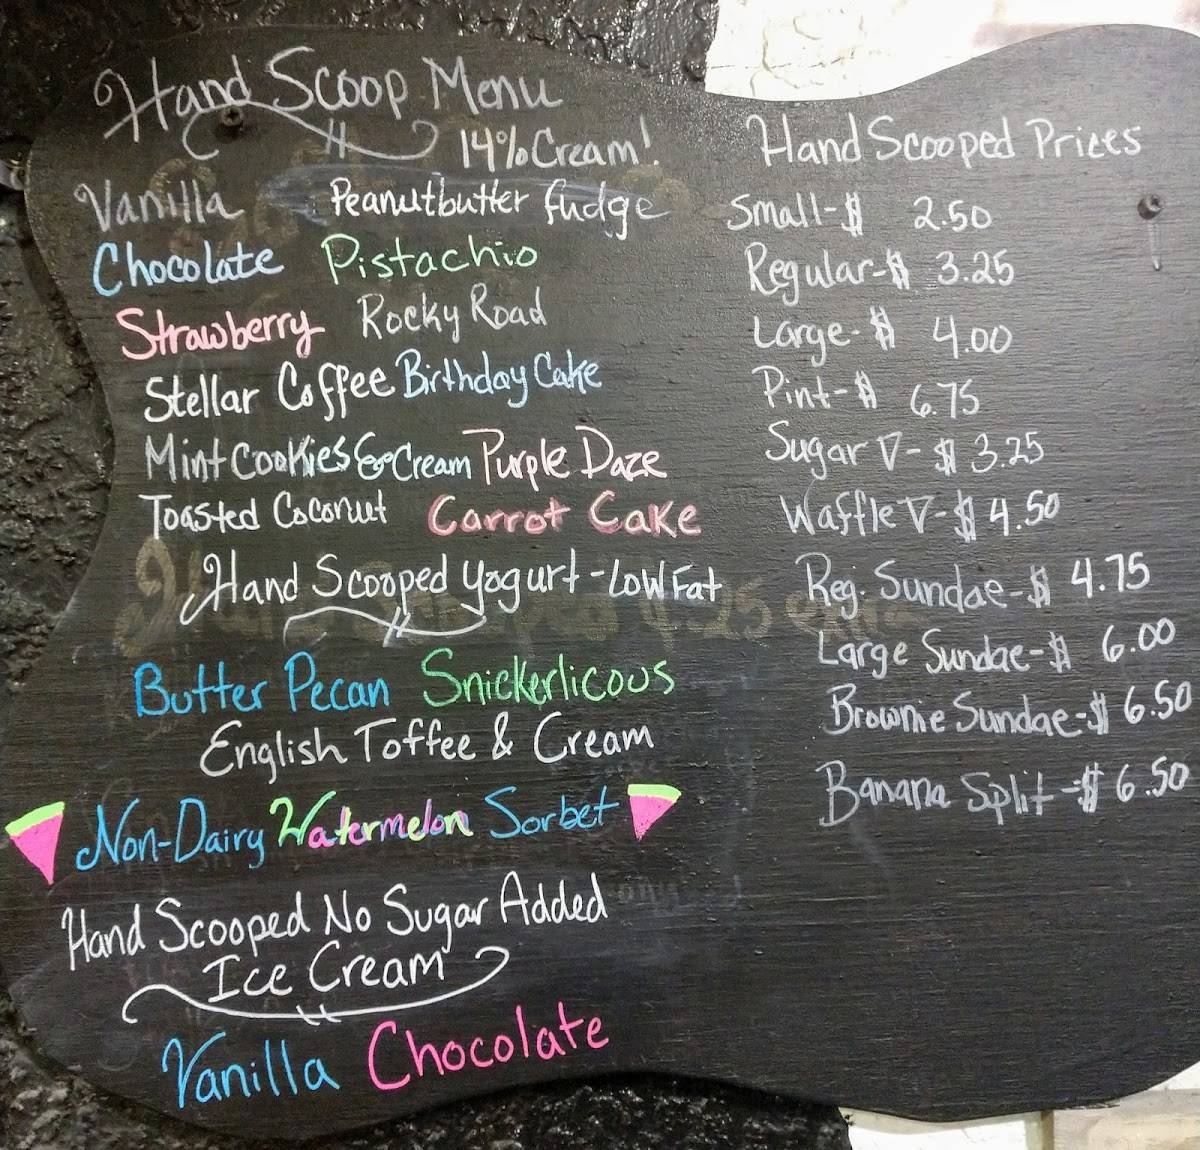 Hand Scoop Menu
14% Cream!
Vanilla Peanutbutter fudge
Chocolate Pistachio
Strawberry Rocky Road
Stellar Coffee Birthday Cake
Mint Cookies & Cream Purple Daze
Toasted Coconut Carrot Cake
Hand Scooped Yogurt - Low Fat
Butter Pecan Snickerlicous
English Toffee & Cream
Non-Dairy Watermelon Sorbet
Hand Scooped No Sugar Added
Ice Cream
Vanilla Chocolate
Hand Scooped Prices
Small - $ 2.50
Regular - $ 3.25
Large - $ 4.00
Pint - $ 6.75
Sugar ▽ - $ 3.25
Waffle ▽ - $ 4.50
Reg. Sundae - $ 4.75
Large Sundae - $ 6.00
Brownie Sundae - $ 6.50
Banana Split - $ 6.50